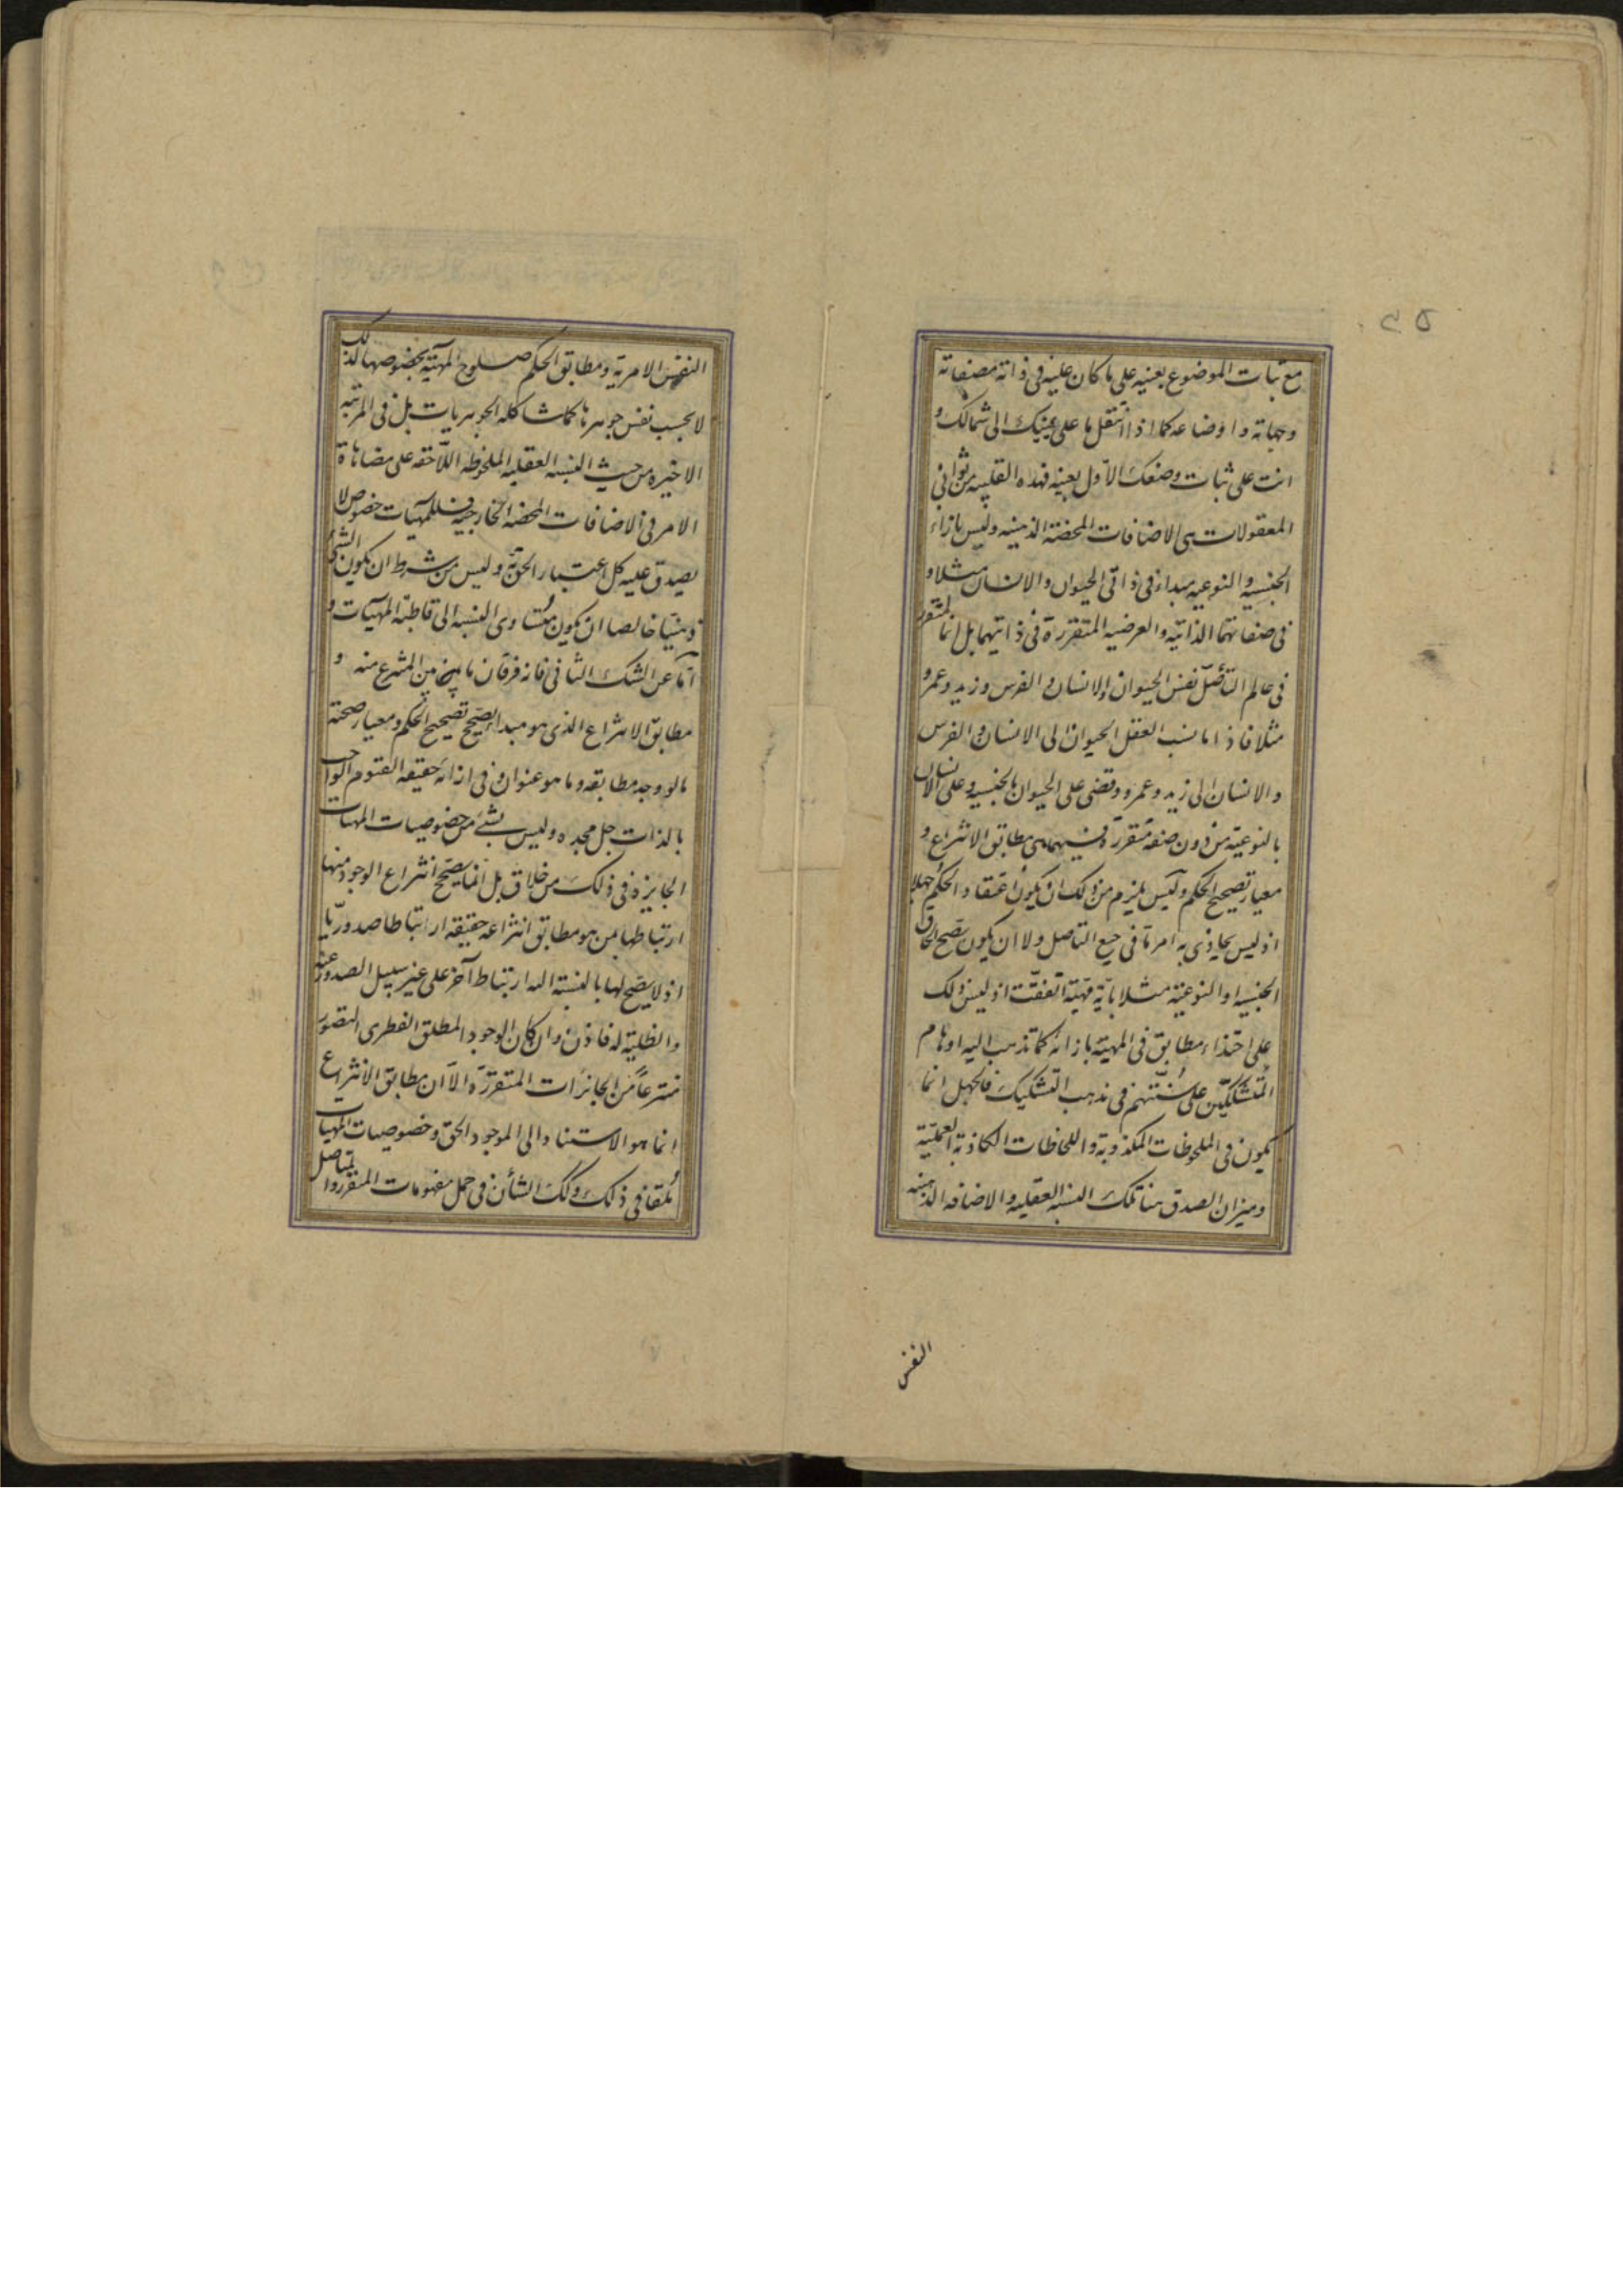 ٤٥
مع ثبات الموضوع بعينه على ما كان عليه فى ذاته وصفاته
وجهاته و اوضاعه كما اذا انتقل ما على يمينك الى شمالك و
انت على ثبات وضعك الاول بعينه فهذه القلبيه من ثوانى
المعقولات هى الاضافات المحضة الذهنيه وليس بازاء
الجنسيه والنوعيه مبداء فى ذاتى الحيوان والانسان مثلا و
فى صفاتهما الذاتيه والعرضيه المتقررة فى ذاتيهما بل انما المتقرر
فى عالم التأصّل نفس الحيوان والانسان والفرس وزيد وعمرو
مثلا فاذا ما نسب العقل الحيوان الى الانسان والفرس
والانسان الى زيد وعمرو وقضى على الحيوان بالجنسيه وعلى الانسان
بالنوعيّة من دون صفة متقررة فيهما هى مطابق الانتزاع و
معيار تصحيح الحكم وليس يلزم من ذلك ان يكون اعتقاد الحكم جهلا
اذ ليس يحاذى به امر ما فى صقع التاصل ولا ان يكون يصح الحاق
الجنسيه او النوعيّة مثلا بايّة مهيّة اتفقت اذ ليس ذلك
على احتذاء مطابق فى المهيّة بازائه كما تذهب اليه اوهام
المتشككين على سنّتهم فى مذهب التشكيك فالجهل انما
يكون فى الملحوظات المكذوبة واللحاظات الكاذبة العمليّة
وميزان الصدق هنا تلك النسبة العقليه والاضافه الذهنيه
النفس
النفس الامريّة ومطابق الحكم صلوح المهيّة بخصوصها لذلك
لا بحسب نفس جوهرها كما شاكله الجوهريات بل فى المرتبه
الاخيره من حيث النسبه العقليه الملحوظه اللاحقه على مضاهاة
الامر فى الاضافات المحضه الخارجيه فللمهيات خصوص لا
يصدق عليه كل اعتبار الحق به وليس من شرط ان يكون الشئ
ذهنيّا خالصا ان يكون متساوى النسبه الى قاطبة المهيات و
اما عن الشك الثانى فانه فرقان ما بين المنتزع منه و
مطابق الانتزاع الذى هو مبدا يصح تصحيح الحكم ومعيار صحة
ما لووجد مطابقه وما هو عنوان فى ازائه حقيقه القيوم الواجب
بالذات جل مجده وليس بشئ من خصوصيات المهيات
الجايزة فى ذلك من خلاق بل انما يصح انتزاع الوجود منها
ارتباطها بمن هو مطابق انتزاعه حقيقه ارتباطا صدوريّا
اذ لا يصح لها بالنسبة اليه ارتباط آخر على غير سبيل الصدور عنه
والظلية له فاذن وان كان الوجود المطلق الفطرى التصور
منتزعاً من الجائزات المتقررة الا ان مطابق الانتزاع
انما هو الاستناد الى الموجود الحق وخصوصيات المهيات
ملقاة فى ذلك وكك الشأن فى حمل مفهومات المتقرر والمتاصل